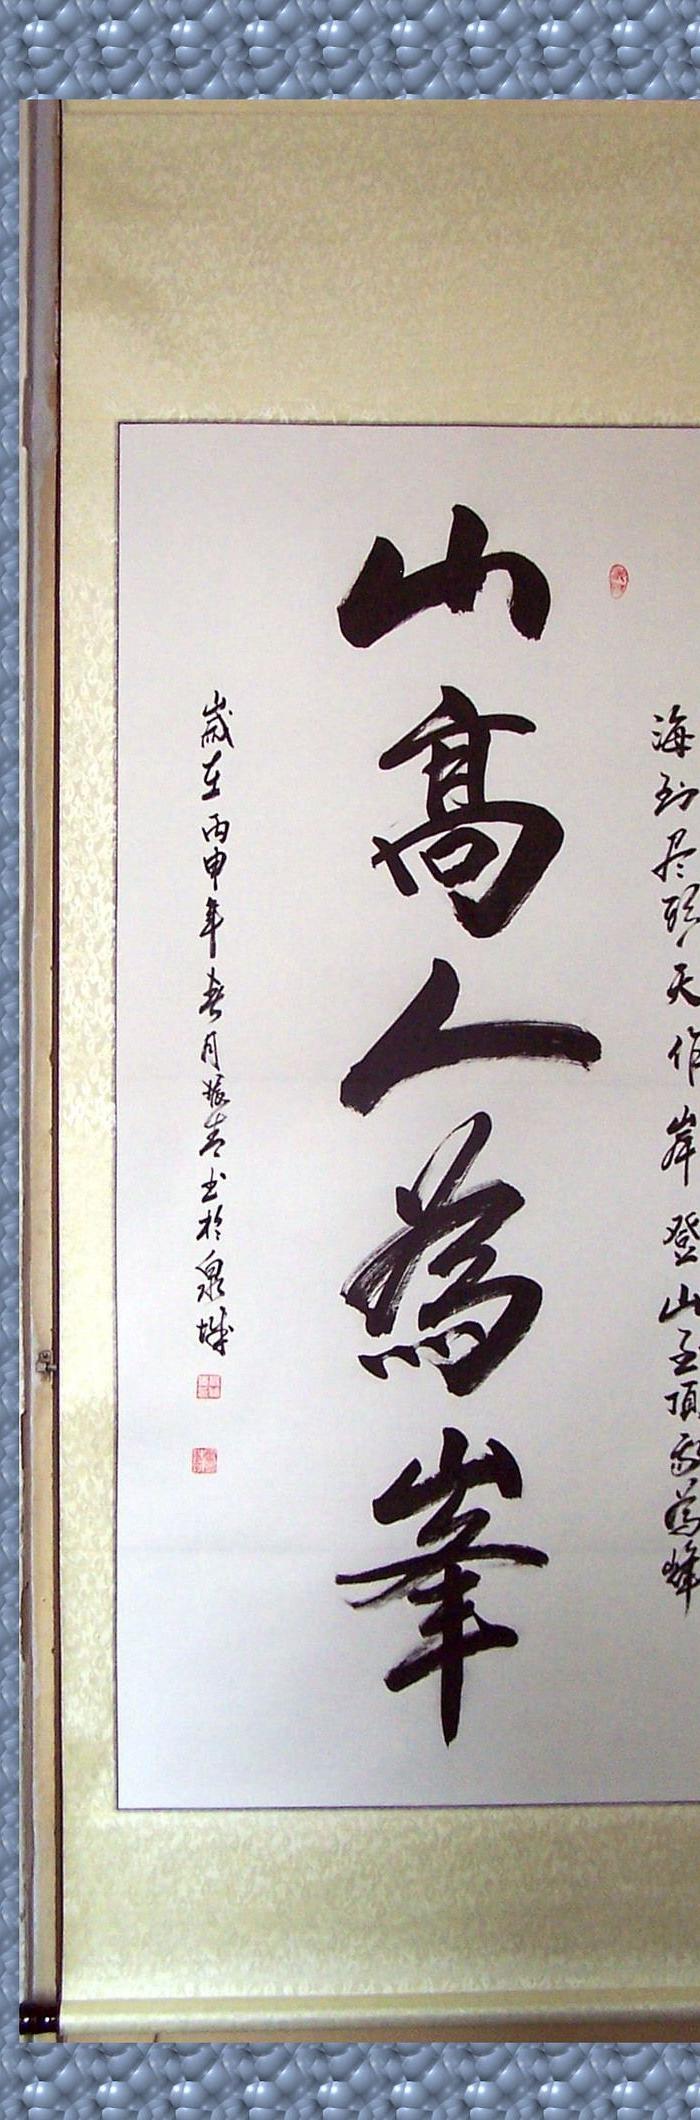 海到尽頭天作岸登山至頂我為峰
山高人為峯
歲在丙申年春月振青书於泉城